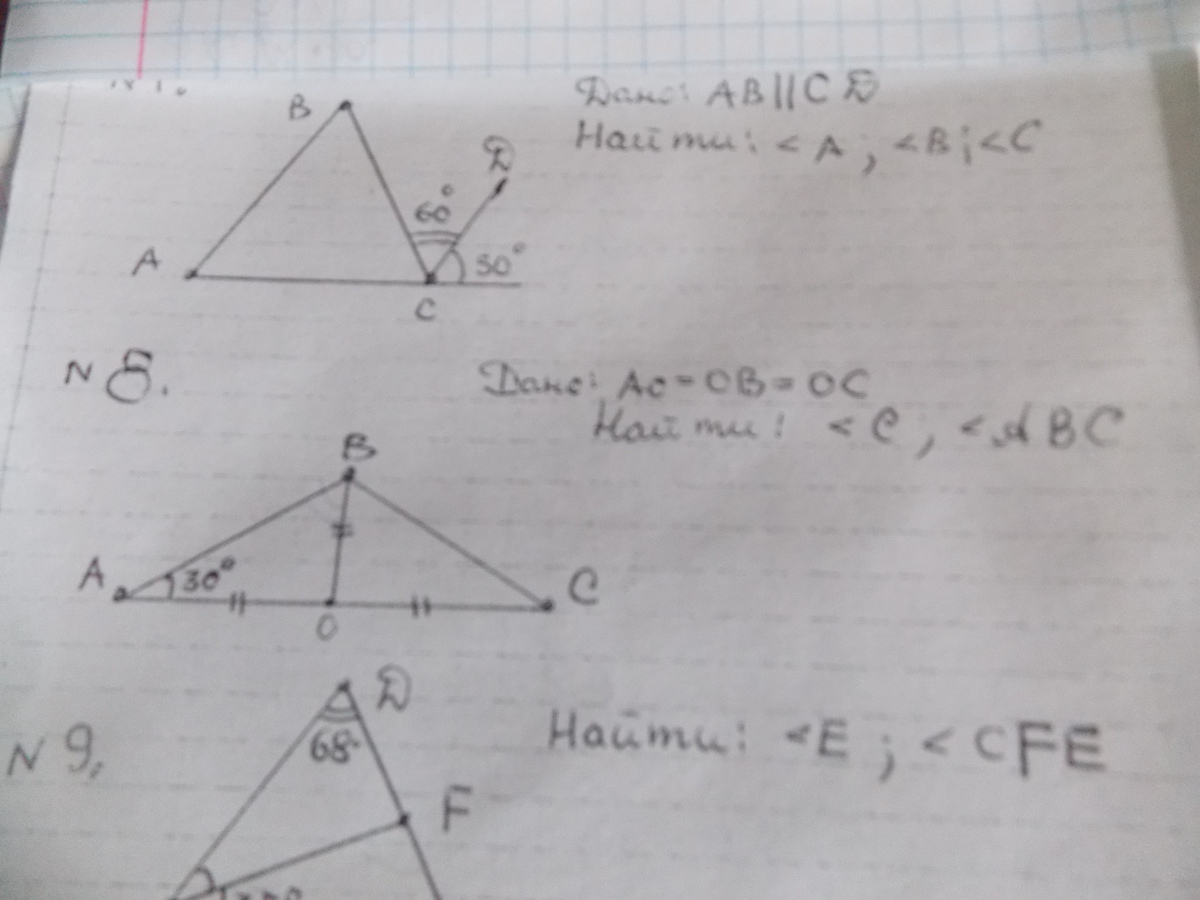 B
Дано: AB||CD
Найти: <A; <B; <C
D
60°
A
50°
C
N 8.
Дано: AO=OB=OC
Найти: <C, <ABC
B
A
30°
C
O
D
N 9.
Найти: <E; <CFE
68°
F